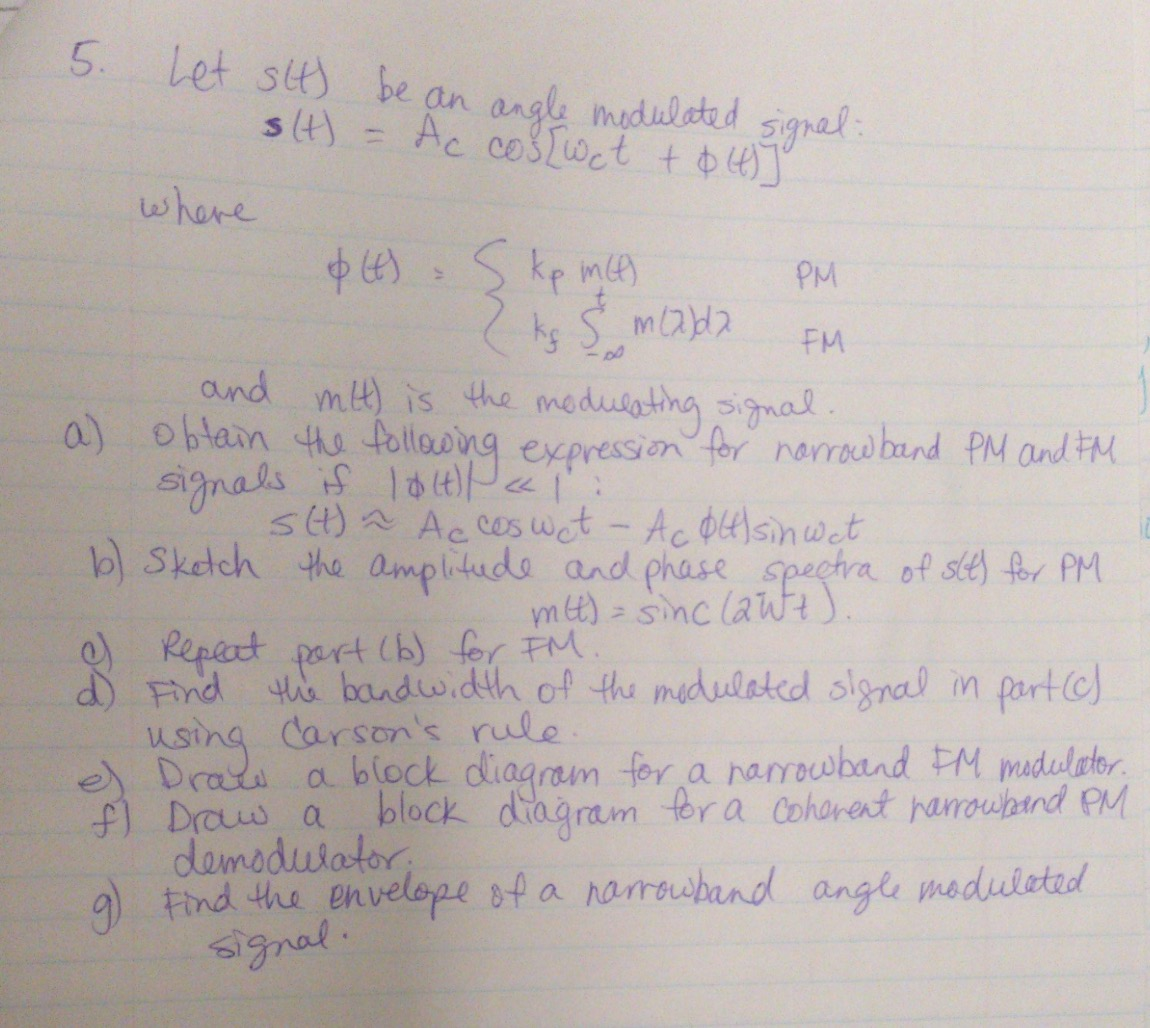 5. Let s(t) be an angle modulated signal:
s(t) = Ac cos[ωct + φ(t)]
where
φ(t) = { kp m(t) PM
kf ∫_{-∞}^{t} m(λ)dλ FM
and m(t) is the modulating signal.
a) Obtain the following expression for narrowband PM and FM
signals if |φ(t)| << 1 :
s(t) ≈ Ac cos ωct - Ac φ(t) sin ωct
b) Sketch the amplitude and phase spectra of s(t) for PM
m(t) = sinc(2Wt).
c) Repeat part (b) for FM.
d) Find the bandwidth of the modulated signal in part (c)
using Carson's rule.
e) Draw a block diagram for a narrowband FM modulator.
f) Draw a block diagram for a coherent narrowband PM
demodulator.
g) Find the envelope of a narrowband angle modulated
signal.